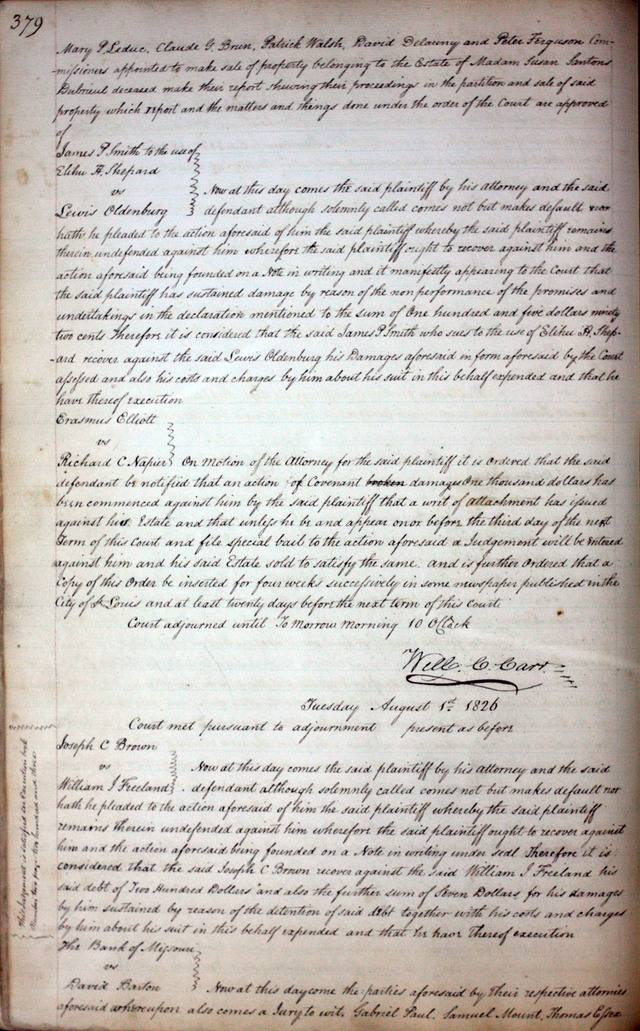 379
Mary P. Leduc, Claude G. Brun, Patrick Walsh, David Delauny and Peter Ferguson Com-
-missioners appointed to make sale of property belonging to the Estate of Madam Susan Santons
Dubreuil deceased make their report shewing their proceedings in the partition and sale of said
property which report and the matters and things done under the order of the Court are approved
of
James P Smith to the use of
Elihu H. Shepard
vs Now at this day comes the said plaintiff by his Attorney and the said
Lewis Oldenburg defendant although solemnly called comes not but makes default nor
hath he pleaded to the action aforesaid of him the said plaintiff whereby the said plaintiff remains
therein undefended against him wherefore the said plaintiff ought to recover against him and the
action aforesaid being founded on a Note in writing and it manifestly appearing to the Court that
the said plaintiff has sustained damage by reason of the non performance of the promises and
undertakings in the declaration mentioned to the sum of One hundred and five dollars ninety
two cents Therefore it is considered that the said James P Smith who sues to the use of Elihu H. Shep-
-ard recover against the said Lewis Oldenburg his Damages aforesaid in form aforesaid by the Court
assessed and also his costs and charges by him about his suit in this behalf expended and that he
have thereof execution
Erasmus Elliott
vs
Richard C Napier On Motion of the Attorney for the said plaintiff it is Ordered that the said
defendant be notified that an action of Covenant broken damages One thousand dollars has
been commenced against him by the said plaintiff that a writ of attachment has issued
against his Estate and that unless he be and appear on or before the third day of the next
Term of this Court and file special bail to the action aforesaid a Judgement will be entered
against him and his said Estate sold to satisfy the same. and is further Ordered that a
Copy of this Order be inserted for four weeks successively in some newspaper published in the
City of St Louis and at least twenty days before the next term of this court
Court adjourned until To Morrow morning 10 OClock
Will. C. Carr
Tuesday August 1st 1826
Court met pursuant to adjournment present as before
Joseph C Brown
vs Now at this day comes the said plaintiff by his Attorney and the said
William I Freeland defendant although solemnly called comes not but makes default nor
hath he pleaded to the action aforesaid of him the said plaintiff whereby the said plaintiff
remains therein undefended against him wherefore the said plaintiff ought to recover against
him and the action aforesaid being founded on a Note in writing under seal Therefore it is
considered that the said Joseph C Brown recover against the said William I Freeland his
said debt of Two Hundred Dollars and also the further sum of Seven Dollars for his damages
by him sustained by reason of the detention of said debt together with his costs and charges
by him about his suit in this behalf expended and that he have Thereof execution
This judgement is satisfied see Execution book
Number two page two hundred and three
The Bank of Missouri
vs
David Barton Now at this day come the parties aforesaid by Their respective attornies
aforesaid whereupon also comes a Jury to wit, Gabriel Paul, Samuel Mount, Thomas Essex